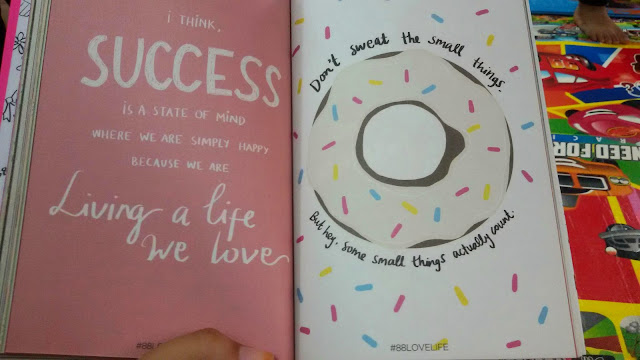 I THINK,
SUCCESS
IS A STATE OF MIND
WHERE WE ARE SIMPLY HAPPY
BECAUSE WE ARE
Living a life
we love
#88LOVE
Don't sweat the small things.
But hey, some small things actually count.
#88LOVELIFE
NEED FOR